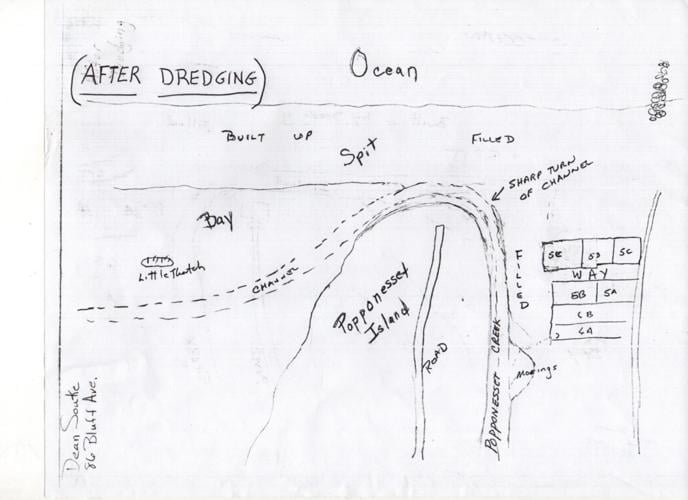 (AFTER DREDGING)
Ocean
BUILT UP
FILLED
Spit
SHARP TURN
OF CHANNEL
Bay
Little Thatch
CHANNEL
Popponesset
Island
ROAD
POPPONESSET CREEK
FILLED
5E
5D
5C
WAY
5B
5A
6B
6A
Moorings
86 Bluff Ave.
Dean